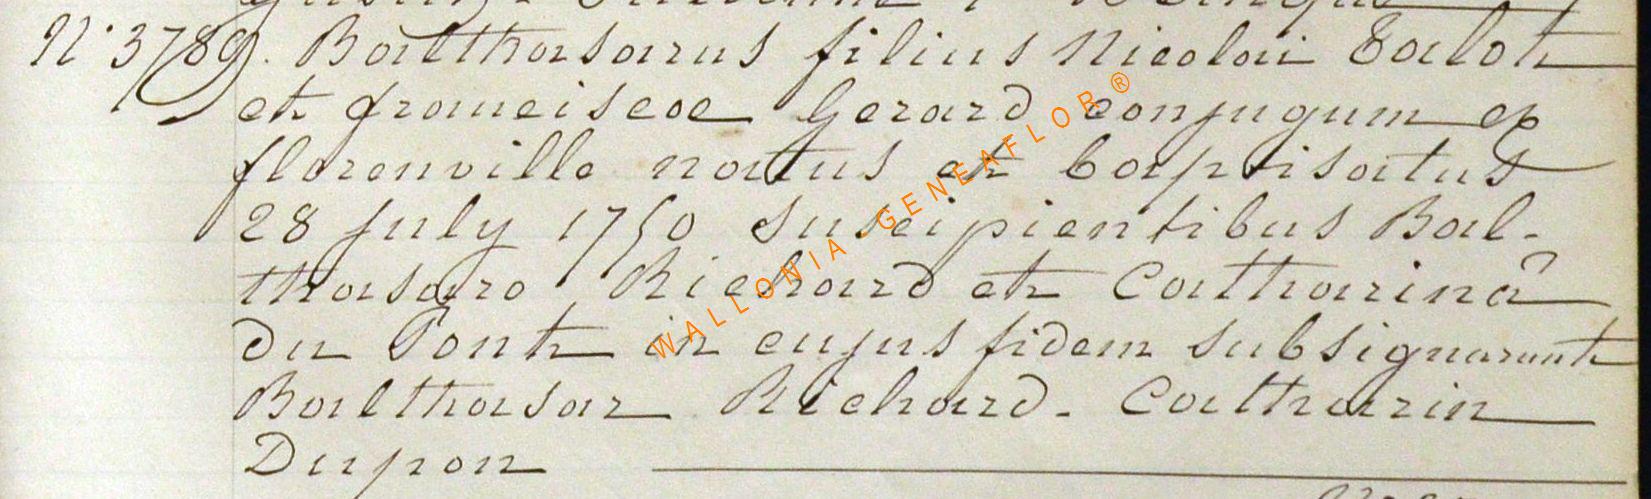 N° 3789. Balthasarus filius Nicolai Talot
et franciscae Gerard conjugum ex
florenville natus et baptisatus
28 july 1750 suscipientibus Bal-
thasaro Richard et Catharinâ
du Pont in cujus fidem subsignarunt
Balthasar Richard. Catharin
Dupon
WALLONIA GENEAFLOR ®